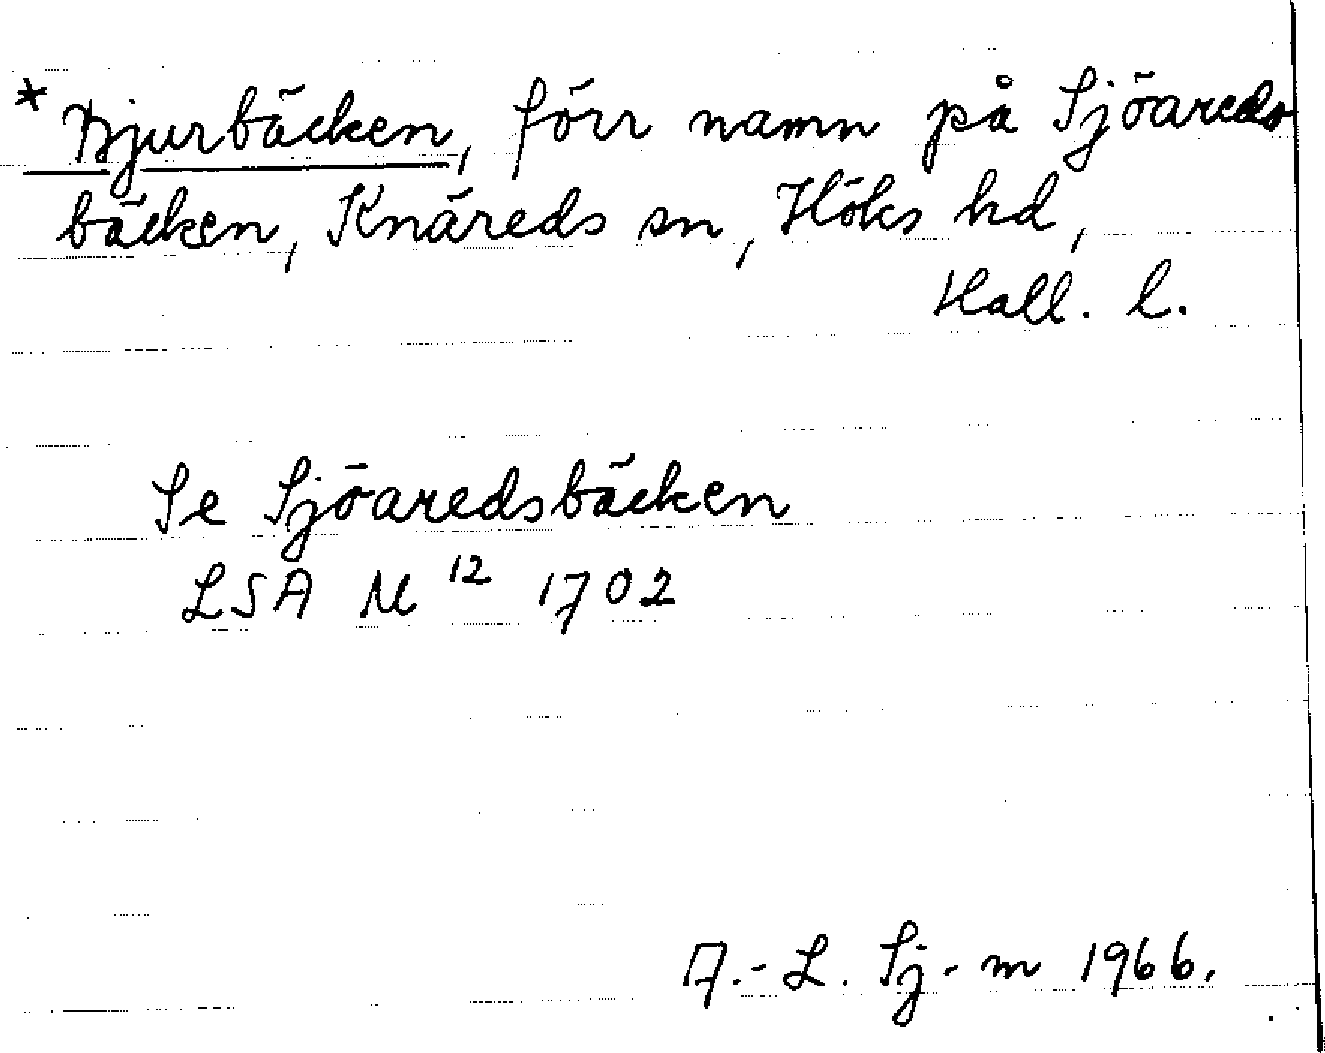 * Bjurbäcken, förr namn på Sjöareds
bäcken, Knäreds sn, Höks hd,
Hall. l.
Se Sjöaredsbäcken
LSA M 12 1702
A.-L. Sj-m 1966.